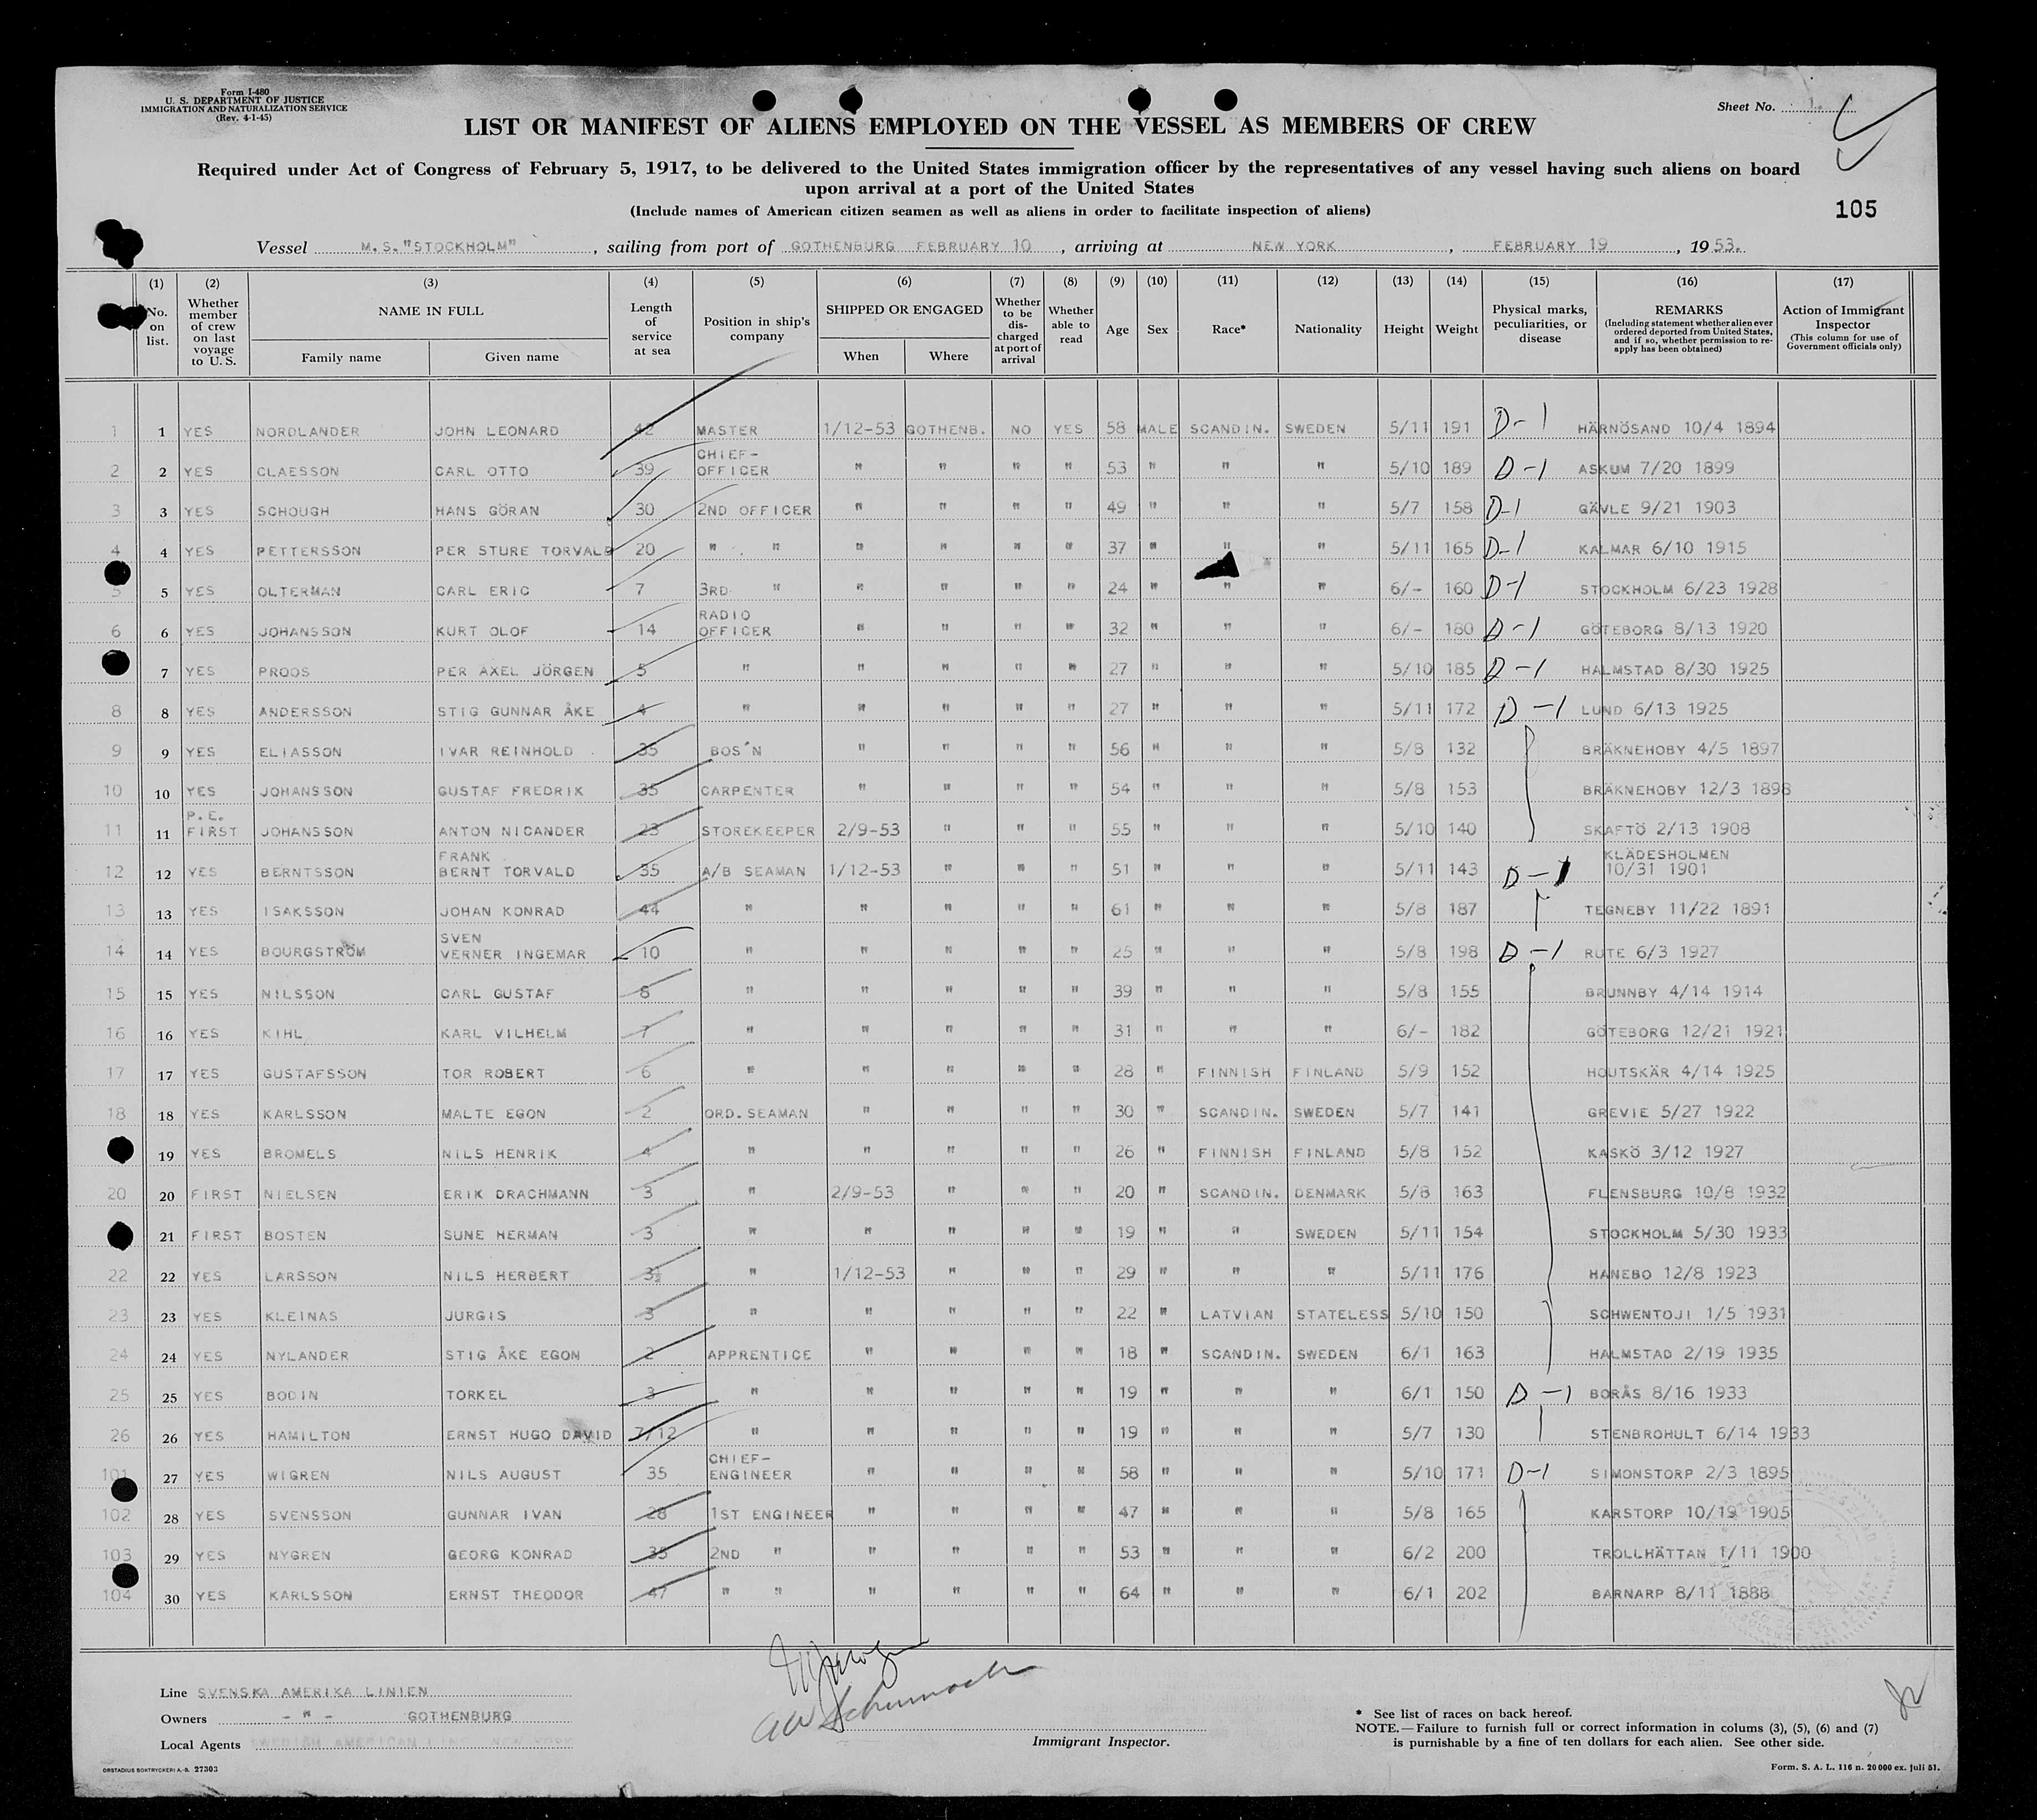 Form I-480
U. S. DEPARTMENT OF JUSTICE
IMMIGRATION AND NATURALIZATION SERVICE
(Rev. 4-1-45)
Sheet No. 1.
LIST OR MANIFEST OF ALIENS EMPLOYED ON THE VESSEL AS MEMBERS OF CREW
Required under Act of Congress of February 5, 1917, to be delivered to the United States immigration officer by the representatives of any vessel having such aliens on board
upon arrival at a port of the United States
(Include names of American citizen seamen as well as aliens in order to facilitate inspection of aliens)
105
Vessel M.S."STOCKHOLM", sailing from port of GOTHENBURG FEBRUARY 10, arriving at NEW YORK, FEBRUARY 19, 1953.
(1) (2) (3) (4) (5) (6) (7) (8) (9) (10) (11) (12) (13) (14) (15) (16) (17)
No. on list. Whether member of crew on last voyage to U. S. NAME IN FULL Family name Given name Length of service at sea Position in ship's company SHIPPED OR ENGAGED When Where Whether to be discharged at port of arrival Whether able to read Age Sex Race* Nationality Height Weight Physical marks, peculiarities, or disease REMARKS (Including statement whether alien ever ordered deported from United States, and if so, whether permission to reapply has been obtained) Action of Immigrant Inspector (This column for use of Government officials only)
1 1 YES NORDLANDER JOHN LEONARD 42 MASTER 1/12-53 GOTHENB. NO YES 58 MALE SCANDIN. SWEDEN 5/11 191 D-1 HÄRNÖSAND 10/4 1894
2 2 YES CLAESSON CARL OTTO 39 CHIEF-OFFICER " " " " 53 " " " 5/10 189 D-1 ASKUM 7/20 1899
3 3 YES SCHOUGH HANS GÖRAN 30 2ND OFFICER " " " " 49 " " " 5/7 158 D-1 GÄVLE 9/21 1903
4 4 YES PETTERSSON PER STURE TORVALD 20 " " " " " " 37 " " " 5/11 165 D-1 KALMAR 6/10 1915
5 5 YES OLTERMAN CARL ERIC 7 3RD " " " " " 24 " " " 6/- 160 D-1 STOCKHOLM 6/23 1928
6 6 YES JOHANSSON KURT OLOF 14 RADIO OFFICER " " " " 32 " " " 6/- 180 D-1 GÖTEBORG 8/13 1920
7 YES PROOS PER AXEL JÖRGEN 5 " " " " " 27 " " " 5/10 185 D-1 HALMSTAD 8/30 1925
8 8 YES ANDERSSON STIG GUNNAR ÅKE 4 " " " " " 27 " " " 5/11 172 D-1 LUND 6/13 1925
9 9 YES ELIASSON IVAR REINHOLD 35 BOS'N " " " " 56 " " " 5/8 132 BRÄKNEHOBY 4/5 1897
10 10 YES JOHANSSON GUSTAF FREDRIK 35 CARPENTER " " " " 54 " " " 5/8 153 BRÄKNEHOBY 12/3 1898
11 11 P.E. FIRST JOHANSSON ANTON NICANDER 23 STOREKEEPER 2/9-53 " " " 55 " " " 5/10 140 SKAFTÖ 2/13 1908
12 12 YES BERNTSSON FRANK BERNT TORVALD 35 A/B SEAMAN 1/12-53 " " " 51 " " " 5/11 143 D-1 KLÄDESHOLMEN 10/31 1901
13 13 YES ISAKSSON JOHAN KONRAD 44 " " " " " 61 " " " 5/8 187 TEGNEBY 11/22 1891
14 14 YES BOURGSTRÖM SVEN VERNER INGEMAR 10 " " " " " 25 " " " 5/8 198 D-1 RUTE 6/3 1927
15 15 YES NILSSON CARL GUSTAF 8 " " " " " 39 " " " 5/8 155 BRUNNBY 4/14 1914
16 16 YES KIHL KARL VILHELM 7 " " " " " 31 " " " 6/- 182 GÖTEBORG 12/21 1921
17 17 YES GUSTAFSSON TOR ROBERT 6 " " " " " 28 " FINNISH FINLAND 5/9 152 HOUTSKÄR 4/14 1925
18 18 YES KARLSSON MALTE EGON 2 ORD.SEAMAN " " " " 30 " SCANDIN. SWEDEN 5/7 141 GREVIE 5/27 1922
19 YES BROMELS NILS HENRIK 4 " " " " " 26 " FINNISH FINLAND 5/8 152 KASKÖ 3/12 1927
20 20 FIRST NIELSEN ERIK DRACHMANN 3 " 2/9-53 " " " 20 " SCANDIN. DENMARK 5/8 163 FLENSBURG 10/8 1932
21 FIRST BOSTEN SUNE HERMAN 3 " " " " " 19 " " SWEDEN 5/11 154 STOCKHOLM 5/30 1933
22 22 YES LARSSON NILS HERBERT 3½ " 1/12-53 " " " 29 " " " 5/11 176 HANEBO 12/8 1923
23 23 YES KLEINAS JURGIS 3 " " " " " 22 " LATVIAN STATELESS 5/10 150 SCHWENTOJI 1/5 1931
24 24 YES NYLANDER STIG ÅKE EGON 2 APPRENTICE " " " " 18 " SCANDIN. SWEDEN 6/1 163 HALMSTAD 2/19 1935
25 25 YES BODIN TORKEL 3 " " " " " 19 " " " 6/1 150 D-1 BORÅS 8/16 1933
26 26 YES HAMILTON ERNST HUGO DAVID 7/12 " " " " " 19 " " " 5/7 130 STENBROHULT 6/14 1933
101 27 YES WIGREN NILS AUGUST 35 CHIEF-ENGINEER " " " " 58 " " " 5/10 171 D-1 SIMONSTORP 2/3 1895
102 28 YES SVENSSON GUNNAR IVAN 28 1ST ENGINEER " " " " 47 " " " 5/8 165 KARSTORP 10/19 1905
103 29 YES NYGREN GEORG KONRAD 35 2ND " " " " " 53 " " " 6/2 200 TROLLHÄTTAN 1/11 1900
104 30 YES KARLSSON ERNST THEODOR 47 " " " " " " 64 " " " 6/1 202 BARNARP 8/11 1888
Line SVENSKA AMERIKA LINIEN
Owners -"- GOTHENBURG
Local Agents SWEDISH AMERICAN LINE NEW YORK
Immigrant Inspector.
* See list of races on back hereof.
NOTE.—Failure to furnish full or correct information in colums (3), (5), (6) and (7)
is punishable by a fine of ten dollars for each alien. See other side.
ORSTADIUS BOKTRYCKERI A.-B. 27303
Form. S. A. L. 116 n. 20 000 ex. juli 51.